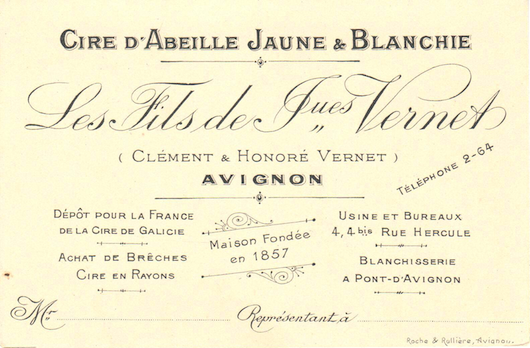 CIRE D'ABEILLE JAUNE & BLANCHIE
Les Fils de Jques Vernet
( CLÉMENT & HONORÉ VERNET )
AVIGNON
TÉLÉPHONE 2-64
DÉPÔT POUR LA FRANCE
DE LA CIRE DE GALICIE
ACHAT DE BRÈCHES
CIRE EN RAYONS
Maison Fondée
en 1857
USINE ET BUREAUX
4, 4 bis RUE HERCULE
BLANCHISSERIE
A PONT-D'AVIGNON
Mr Représentant à
Roche & Rullière, Avignon.